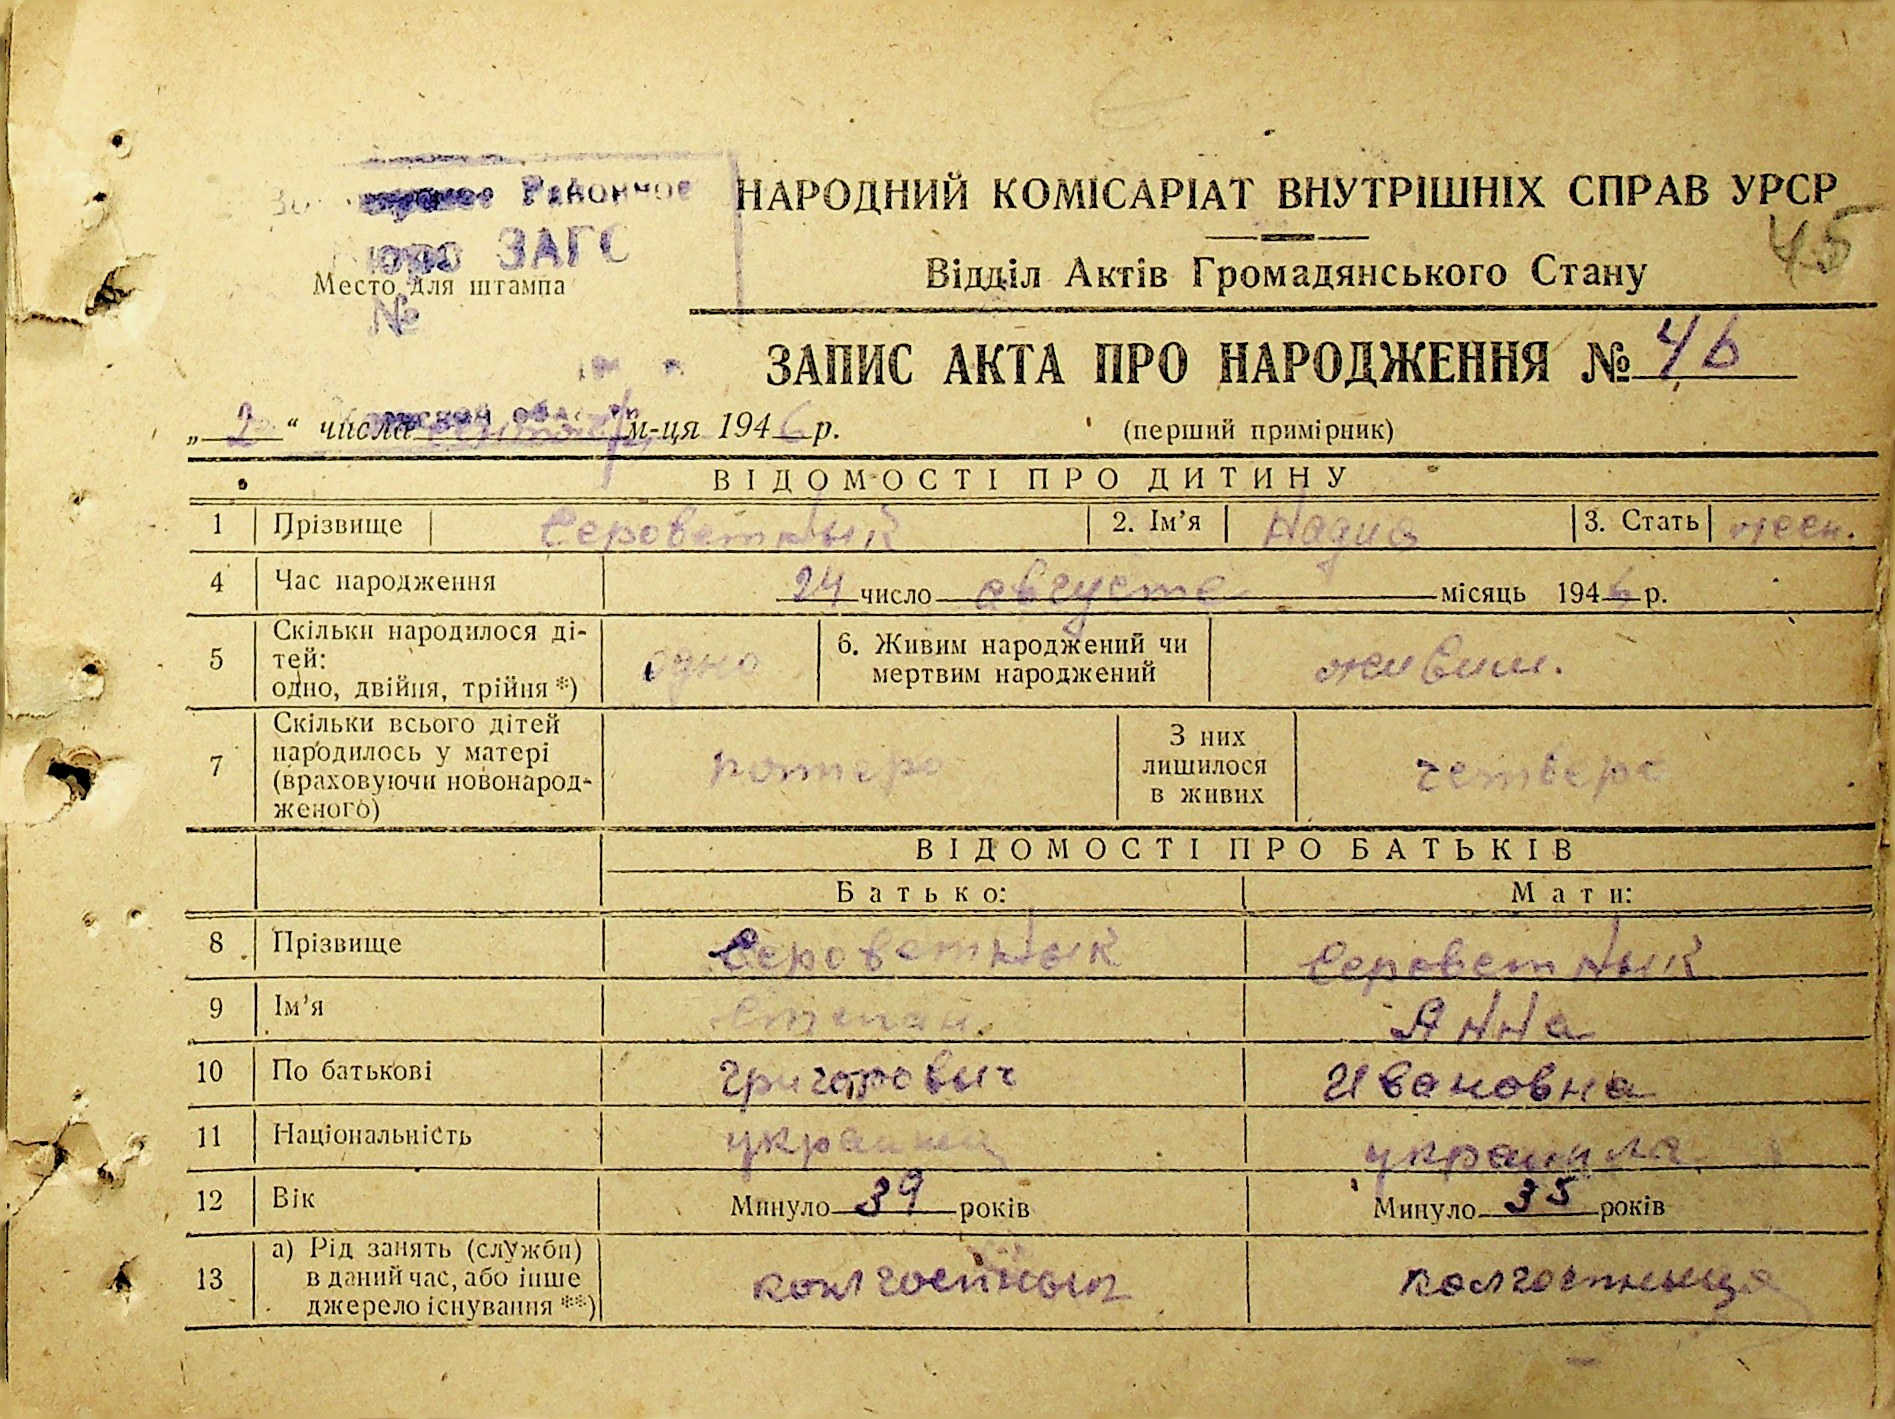 Районное
НАРОДНИЙ КОМІСАРІАТ ВНУТРІШНІХ СПРАВ УРСР
45
бюро ЗАГС
Відділ Актів Громадянського Стану
Место для штампа
№
ЗАПИС АКТА ПРО НАРОДЖЕННЯ № 46
„ 2 “ числа м-ця 1946 р. (перший примірник)
ВІДОМОСТІ ПРО ДИТИНУ
1 Прізвище Сероветнык 2. Ім’я Надиа 3. Стать жен.
4 Час народження 24 число августа місяць 1946 р.
5 Скільки народилося ді-
тей:
одно, двійня, трійня *) одно 6. Живим народжений чи
мертвим народжений живим.
7 Скільки всього дітей
народилось у матері
(враховуючи новонарод-
женого) пятеро З них
лишилося
в живих четверо
ВІДОМОСТІ ПРО БАТЬКІВ
Батько: Мати:
8 Прізвище Сероветнык Сероветнык
9 Ім’я Степан. Анна
10 По батькові Григоровыч Ивановна
11 Національність украинец
12 Вік Минуло 39 років Минуло 35 років
13 а) Рід занять (служби)
в даний час, або інше
джерело існування **) колгоспнык колгоспныца